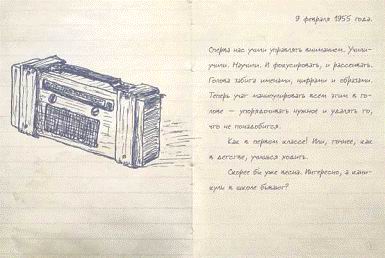 9 февраля 1955 года.
Сперва нас учили управлять вниманием. Учили-
учили. Научили. И фокусировать, и рассеивать.
Голова забита именами, цифрами и образами.
Теперь учат манипулировать всем этим в го-
лове – упорядочивать нужное и удалять то,
что не понадобится.
Как в первом классе! Или, точнее, как
в детстве, учимся ходить.
Скорее бы уже весна. Интересно, а кани-
кулы в школе бывают?